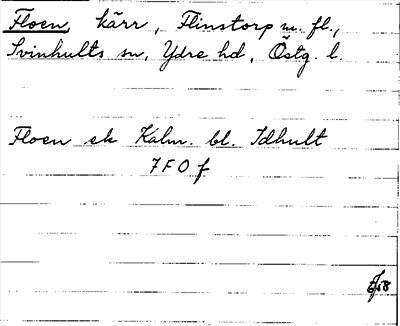 Floen, kärr, Flinstorp m. fl.,
Svinhults sn, Ydre hd, Östg. l.
Floen ek Kalm. bl. Idhult
7 F 0 f